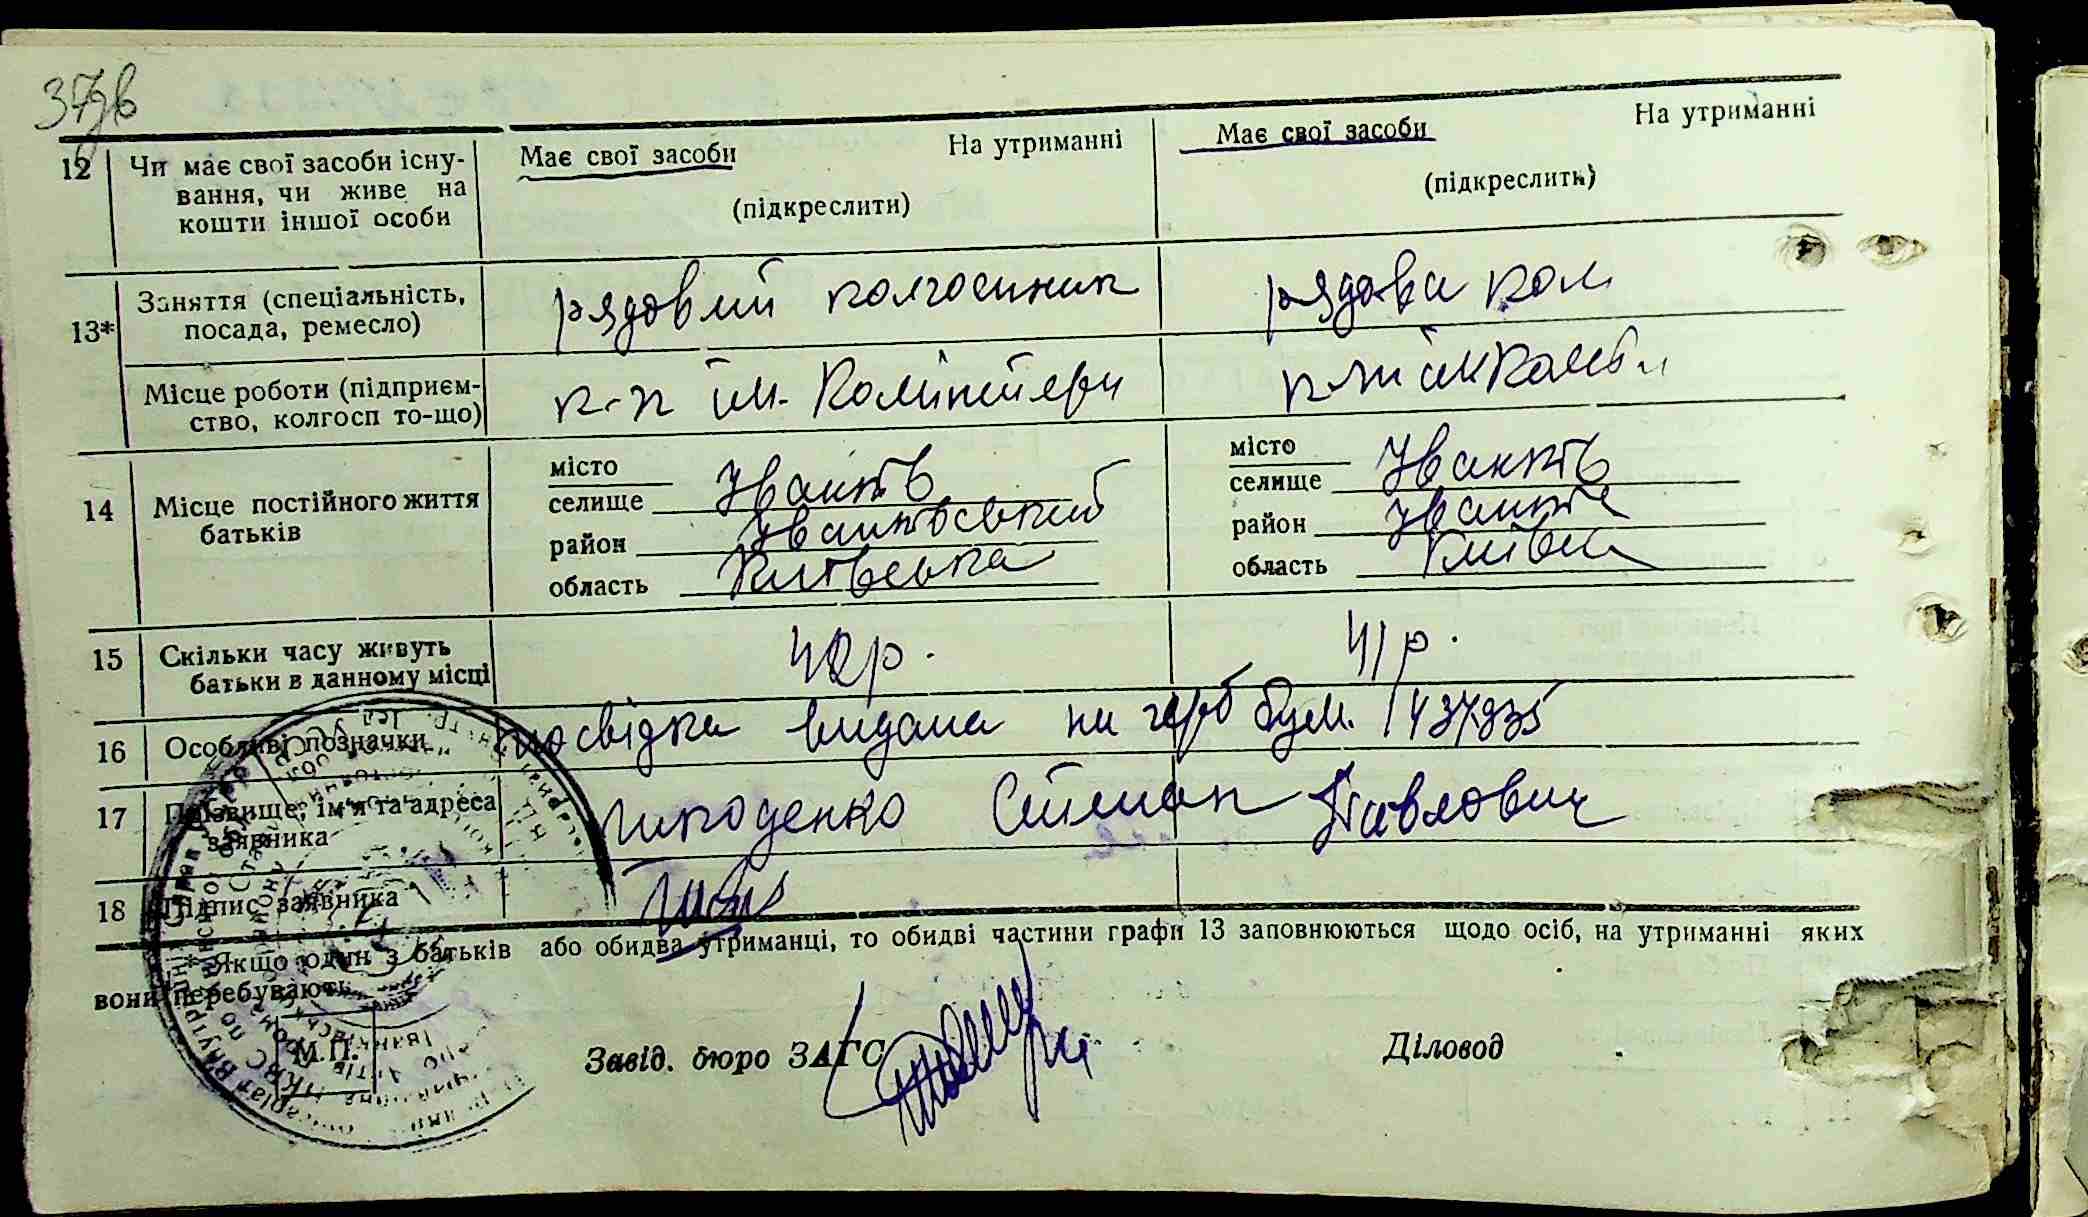 37зв
12 Чи має свої засоби існу- Має свої засоби На утриманні Має свої засоби На утриманні
вання, чи живе на (підкреслити) (підкреслить)
кошти іншої особи
13* Заняття (спеціальність, рядовий колгоспник рядова кол
посада, ремесло)
Місце роботи (підприєм- к-п ім. Комінтерн
ство, колгосп то-що)
14 Місце постійного життя місто місто
батьків селище Іванків селище Іванків
район Іванківський район Іванків
область Київська область Київська
15 Скільки часу живуть 42р. 41р.
батьки в данному місці
16 Особливі позначки посвідка видана на герб бум. 1437935
17 Прізвище, ім'я та адреса Никоденко Степан Павлович
заявника
18 Підпис заявника
* Якщо один з батьків або обидва утриманці, то обидві частини графи 13 заповнюються щодо осіб, на утриманні яких
вони перебувають
М.П.
Завід. бюро ЗАГС Діловод